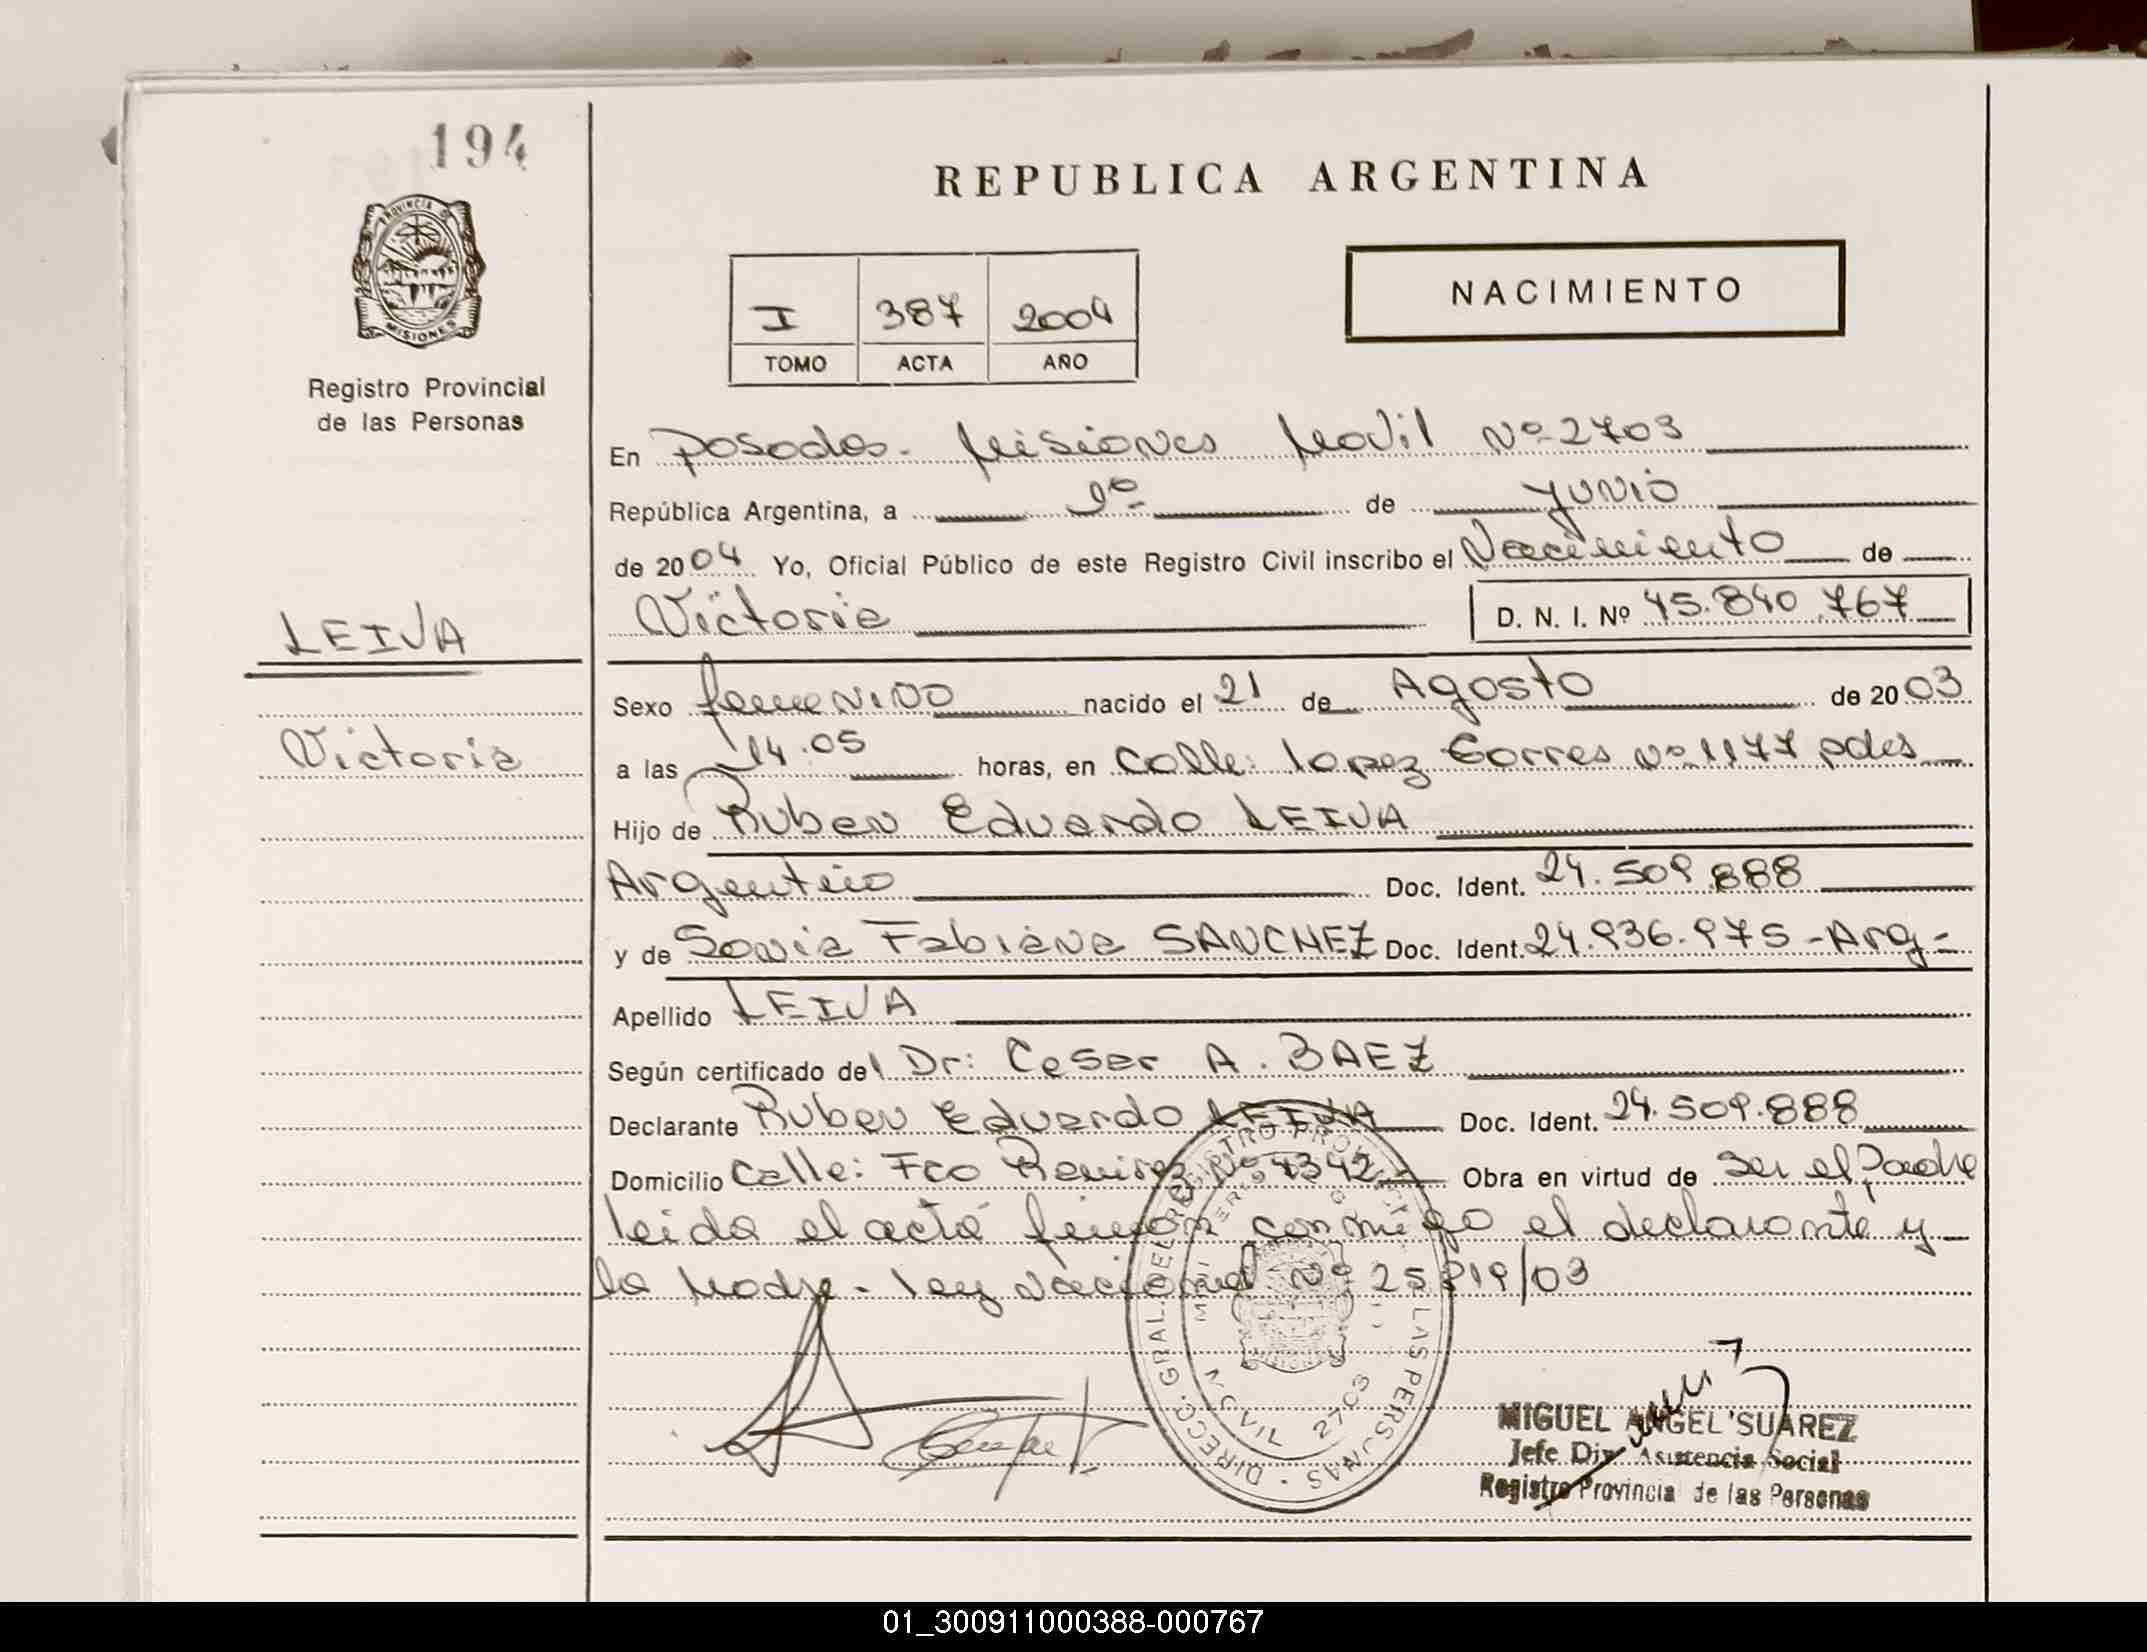 194
PROVINCIA DE
MISIONES
Registro Provincial
de las Personas
REPUBLICA ARGENTINA
NACIMIENTO
I 387 2004
TOMO ACTA AÑO
En Posadas - Misiones Movil Nº 2703
República Argentina, a 1º de Junio
de 2004 Yo, Oficial Público de este Registro Civil inscribo el Nacimiento de
Victoria D. N. I. Nº 45.840.767
LEIVA
Sexo femenino nacido el 21 de Agosto de 2003
Victoria
a las 14.05 horas, en Calle: Lopez Torres Nº 1177 pdas
Hijo de Ruben Eduardo LEIVA
Argentino Doc. Ident. 24.509.888
y de Sonia Fabiana SANCHEZ Doc. Ident. 24.936.975 - Arg -
Apellido LEIVA
Según certificado del Dr: Cesar A. BAEZ
Declarante Ruben Eduardo LEIVA Doc. Ident. 24.509.888
Domicilio Calle: Fco Ramirez Nº 4342 Obra en virtud de Ser el Padre
leida el acta firman conmigo el declarante y
la Madre - Ley Nacional Nº 25819/03
DIRECC. GRAL. DEL REGISTRO PROVINCIAL LAS PERSONAS
MOVIL 2703
MIGUEL ANGEL SUAREZ
Jefe Div Asistencia Social
Registro Provincial de las Personas
01_300911000388-000767